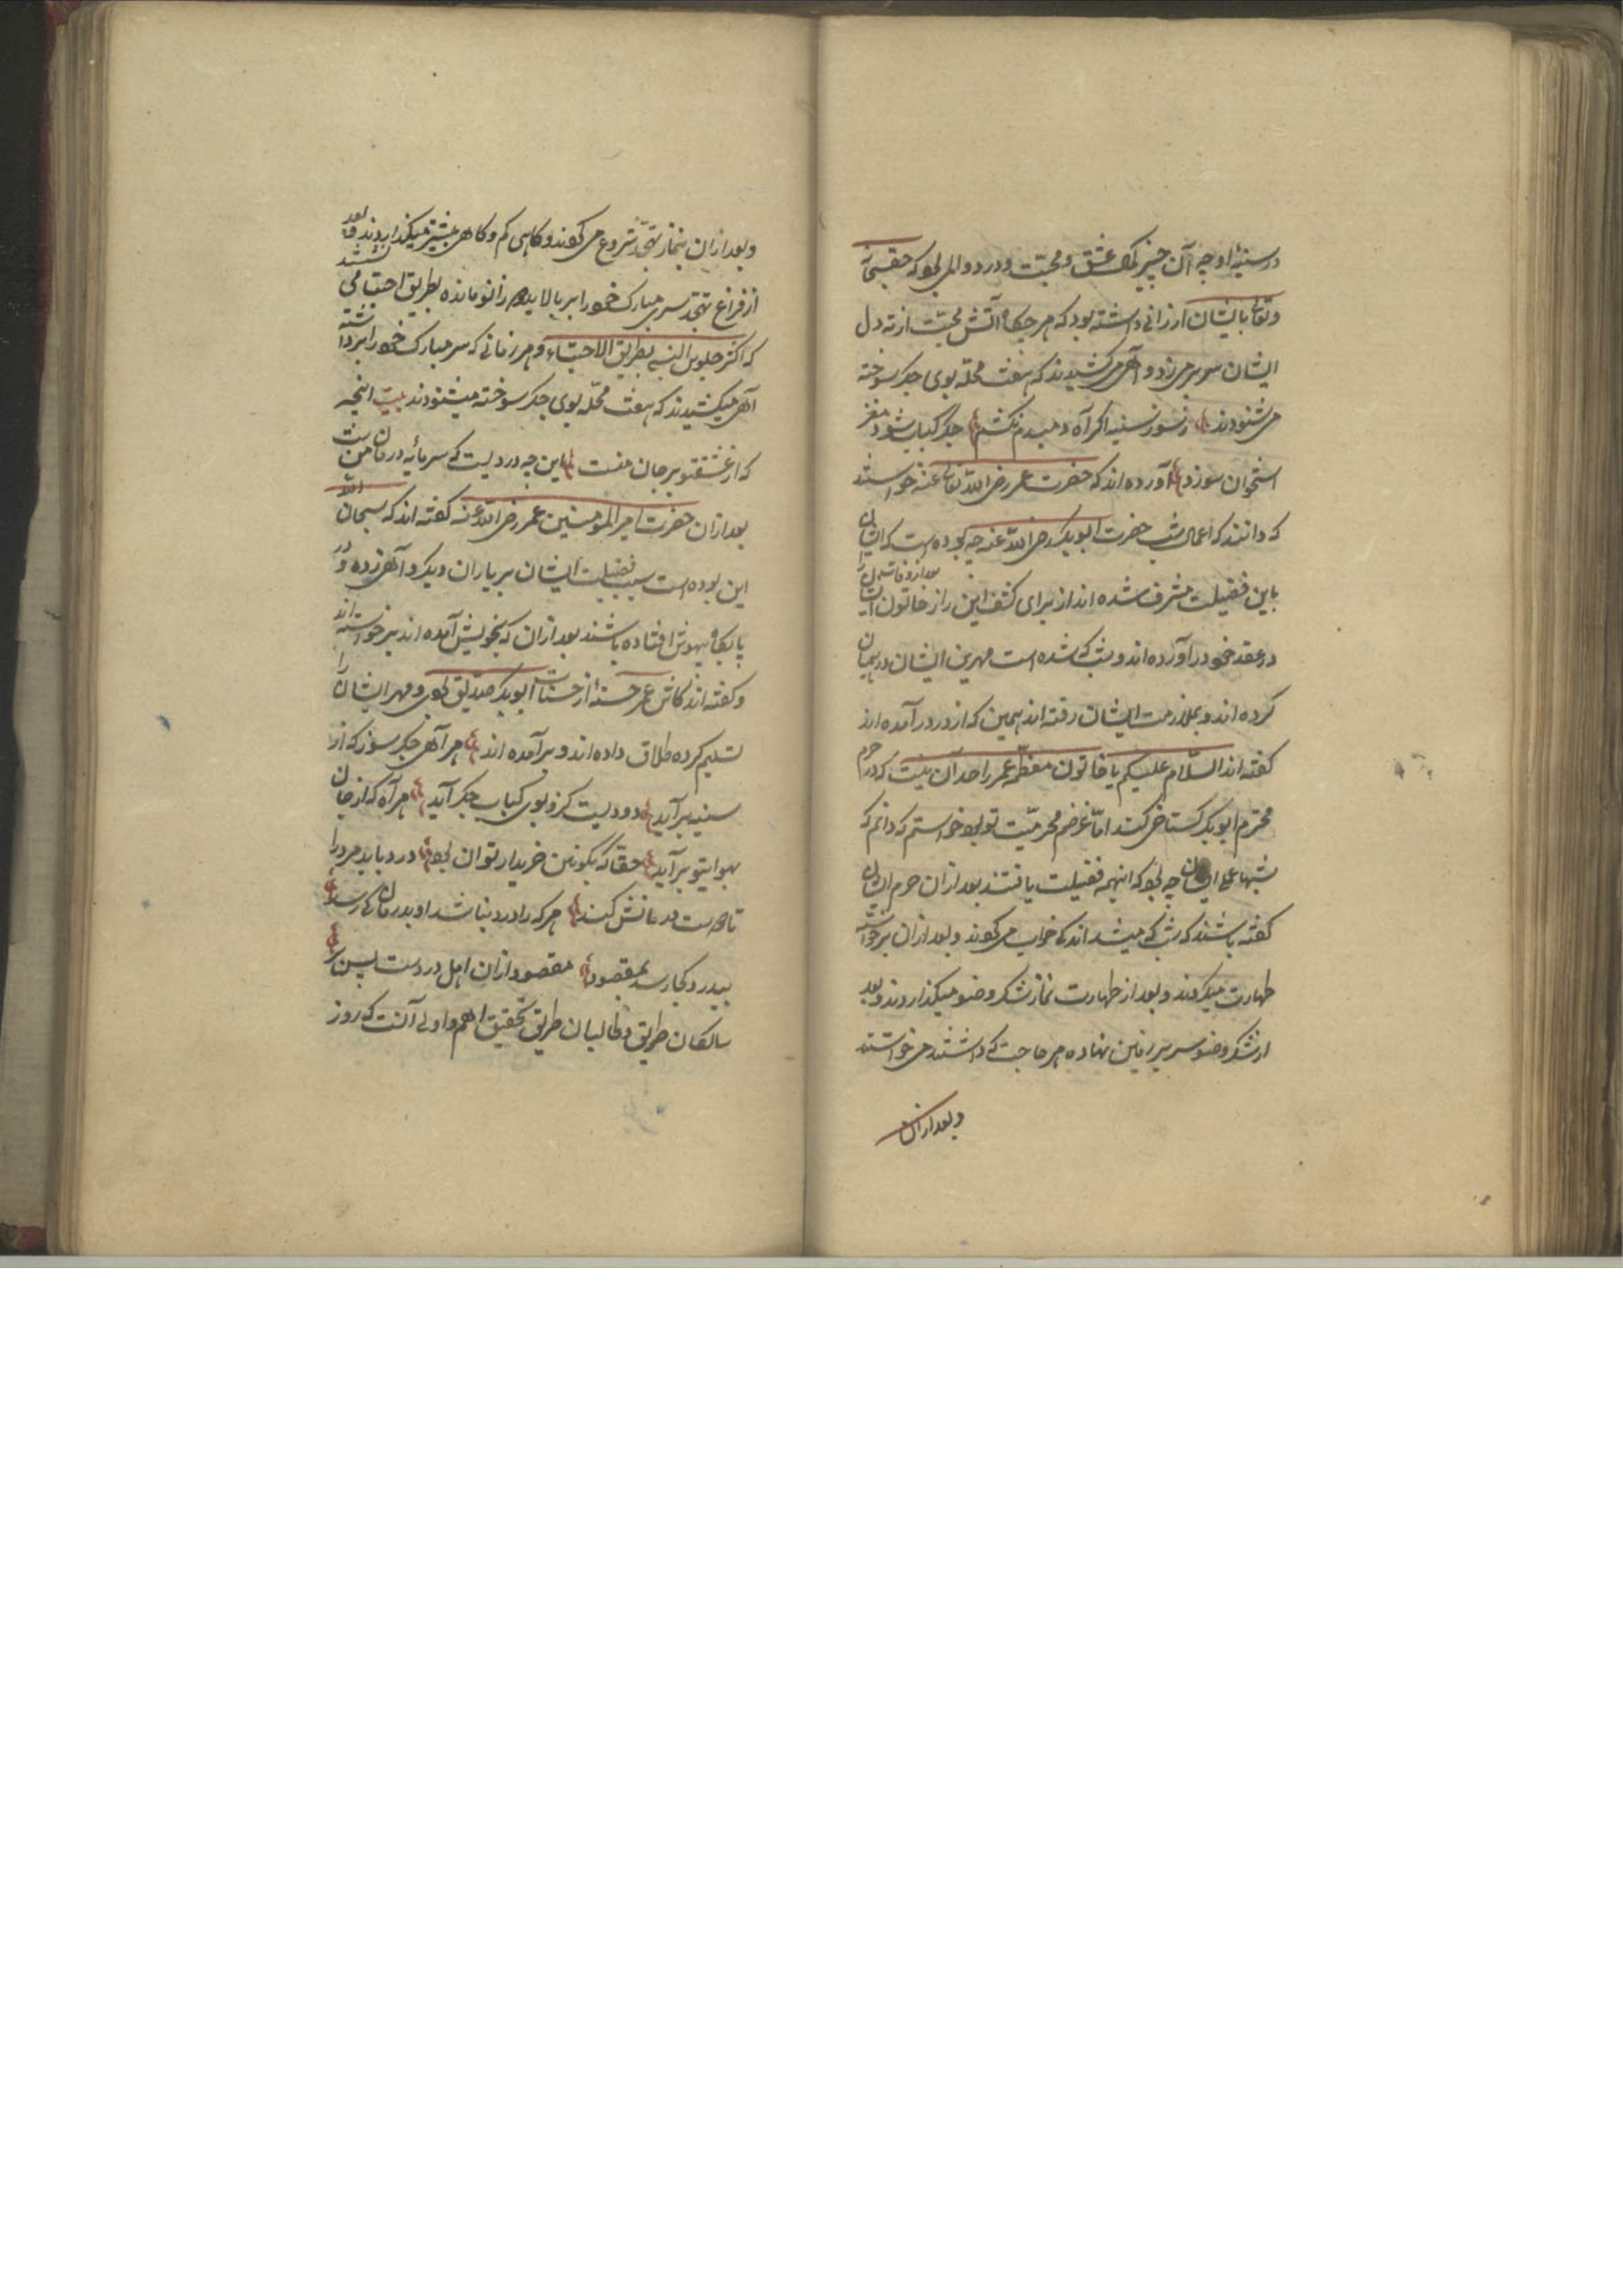 در سینهٔ او چه آن چیز نمک عشق و محبّت و درد و الم بود که حق سبحانه
و تعالی بایشان ارزانی داشته بود که هر چگاه آتش محبّت از ته دل
ایشان سر بر می زد و آهی می کشیدند که هفت محله بوی جگر سوخته
می شنودند ز سوز سینه اگر آه دمبدم نکشم جگر کباب شود مغز
استخوان سوزد آورده اند که حضرت عمر رضی الله تعالی عنه خواستند
که دانند که اعمال شب حضرت ابوبکر رضی الله عنه چه بوده است که ایشان
باین فضیلت مشرف شده اند از برای کشف این راز خاتون ایشان را
بعد از وفات ایشان
در عقد خود در آورده اند و شب که شده است مهر این ایشان در همیان
کرده اند و بملازمت ایشان رفته اند همین که از در در آمده اند
گفته اند السّلام علیکم یا خاتون معظّمه عمر را حد آن نیست که در حرم
محترم ابوبکر گستاخی کند امّا غرضم محرمیّت تو بود خواستم که دانم که
شبها عمل ایشان چه بود که اینهمه فضیلت یافتند بعد از ان حرم ایشان
گفته باشند که شب که میشد اندکی خواب می کردند و بعد از ان برخواسته
طهارت میکردند و بعد از طهارت نماز شکر وضو میگذاردند و بعد
از شکر وضو سر بر زمین نهاده هر حاجت که داشتند می خواستند
و بعد از ان
و بعد از ان بنماز تهجّد شروع می کردند و گاهی کم و گاهی بیشتر میگذاردند و بعد
از فراغ تهجّد سر مبارک خود را بر بالای زانو مانده بطریق احتبا می نشستند
که اکثر جلوس النبی بطریق الاحتباء و هر زمانی که سر مبارک خود را برداشته
آهی میکشیدند که هفت محلّه بوی جگر سوخته میشنودند بیت اینچه
که از عشق تو بر جان منست این چه دردیست که سرمایهٔ درمان منست
بعد از ان حضرت امیر المومنین عمر رضی الله عنه گفته اند که سبحان الله
این بوده است سبب فضیلت ایشان بر یاران دیگر و آهی زده و در
پایگاه بیهوش افتاده باشند بعد از ان که بخویش آمده اند برخواسته اند
و گفته اند کاش عمر حسنهٔ از حسنات ابوبکر صدیق بودی و مهر ایشان را
تسلیم کرده طلاق داده اند و برآمده اند هر آهی جگر سوز که از
سینه برآید دودیست کزو بوی کباب جگر آید هر آه که از جان
بهوای تو برآید حقّا که بکونین خریدار توان بود درد باید مرد را
تا دوست درمانش کند هر که را درد نباشد او بدرمان کی رسد
بیدرد کجا رسد بمقصود مقصود از ان اهل دردست پس بنای
سالکان طریق و طالبان طریق تحقیق اهم و اولی آنست که روز